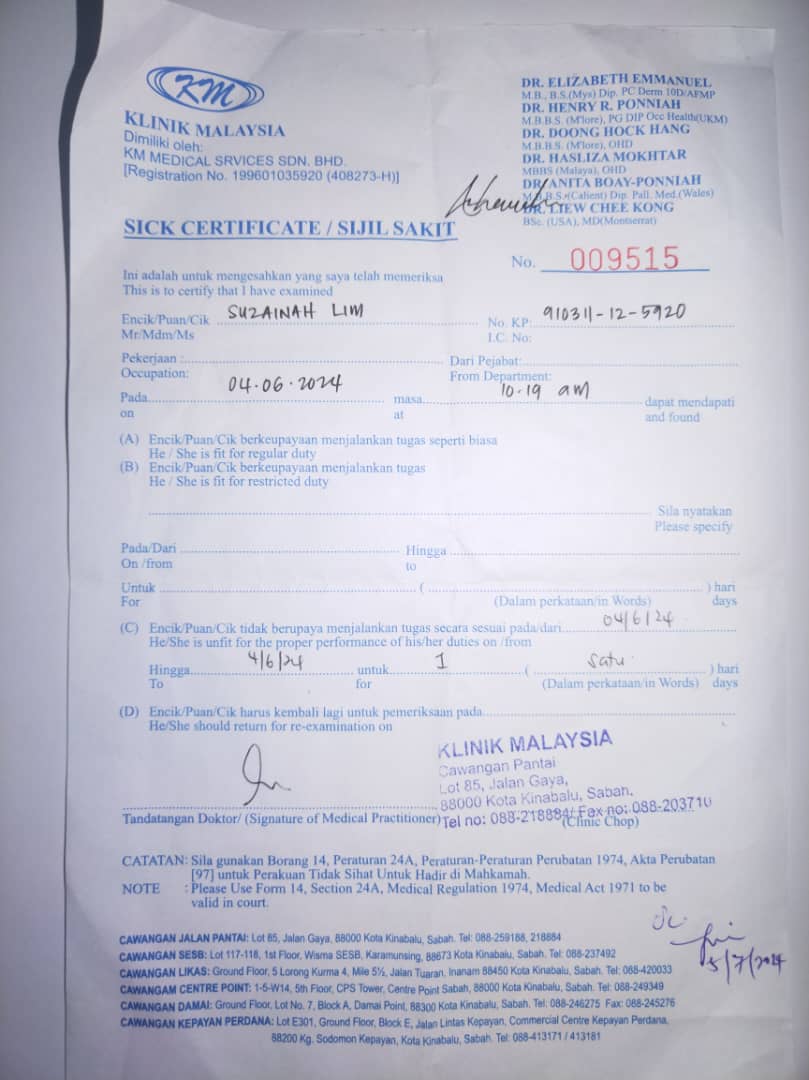 KM
KLINIK MALAYSIA
Dimiliki oleh:
KM MEDICAL SRVICES SDN. BHD.
[Registration No. 199601035920 (408273-H)]
DR. ELIZABETH EMMANUEL
M.B., B.S.(Mys) Dip. PC Derm 10D/AFMP
DR. HENRY R. PONNIAH
M.B.B.S. (M'lore), PG DIP Occ Health(UKM)
DR. DOONG HOCK HANG
M.B.B.S. (M'lore), OHD
DR. HASLIZA MOKHTAR
MBBS (Malaya), OHD
DR. ANITA BOAY-PONNIAH
M.B.B.S.(Calient) Dip. Pall. Med.(Wales)
DR. LIEW CHEE KONG
BSc. (USA), MD(Montserrat)
SICK CERTIFICATE / SIJIL SAKIT
No. 009515
Ini adalah untuk mengesahkan yang saya telah memeriksa
This is to certify that I have examined
Encik/Puan/Cik SUZAINAH LIM No. KP: 910311-12-5920
Mr/Mdm/Ms I.C. No:
Pekerjaan : Dari Pejabat:
Occupation: From Department:
Pada 04.06.2024 masa 10.19 am dapat mendapati
on at and found
(A) Encik/Puan/Cik berkeupayaan menjalankan tugas seperti biasa
He / She is fit for regular duty
(B) Encik/Puan/Cik berkeupayaan menjalankan tugas
He / She is fit for restricted duty
Sila nyatakan
Please specify
Pada/Dari Hingga
On /from to
Untuk ( ) hari
For (Dalam perkataan/in Words) days
(C) Encik/Puan/Cik tidak berupaya menjalankan tugas secara sesuai pada/dari 04/6/24
He/She is unfit for the proper performance of his/her duties on /from
Hingga 4/6/24 untuk 1 ( Satu ) hari
To for (Dalam perkataan/in Words) days
(D) Encik/Puan/Cik harus kembali lagi untuk pemeriksaan pada
He/She should return for re-examination on
KLINIK MALAYSIA
Cawangan Pantai
Lot 85, Jalan Gaya,
88000 Kota Kinabalu, Sabah.
Tel no: 088-218884/ Fax no: 088-203710
Tandatangan Doktor/ (Signature of Medical Practitioner) (Clinic Chop)
CATATAN: Sila gunakan Borang 14, Peraturan 24A, Peraturan-Peraturan Perubatan 1974, Akta Perubatan
[97] untuk Perakuan Tidak Sihat Untuk Hadir di Mahkamah.
NOTE : Please Use Form 14, Section 24A, Medical Regulation 1974, Medical Act 1971 to be
valid in court.
5/7/2024
CAWANGAN JALAN PANTAI: Lot 85, Jalan Gaya, 88000 Kota Kinabalu, Sabah. Tel: 088-259188, 218884
CAWANGAN SESB: Lot 117-118, 1st Floor, Wisma SESB, Karamunsing, 88673 Kota Kinabalu, Sabah. Tel: 088-237492
CAWANGAN LIKAS: Ground Floor, 5 Lorong Kurma 4, Mile 5½, Jalan Tuaran, Inanam 88450 Kota Kinabalu, Sabah. Tel: 088-420033
CAWANGAM CENTRE POINT: 1-5-W14, 5th Floor, CPS Tower, Centre Point Sabah, 88000 Kota Kinabalu, Sabah. Tel: 088-249349
CAWANGAN DAMAI: Ground Floor, Lot No. 7, Block A, Damai Point, 88300 Kota Kinabalu, Sabah. Tel: 088-246275 Fax: 088-245276
CAWANGAN KEPAYAN PERDANA: Lot E301, Ground Floor, Block E, Jalan Lintas Kepayan, Commercial Centre Kepayan Perdana,
88200 Kg. Sodomon Kepayan, Kota Kinabalu, Sabah. Tel: 088-413171 / 413181